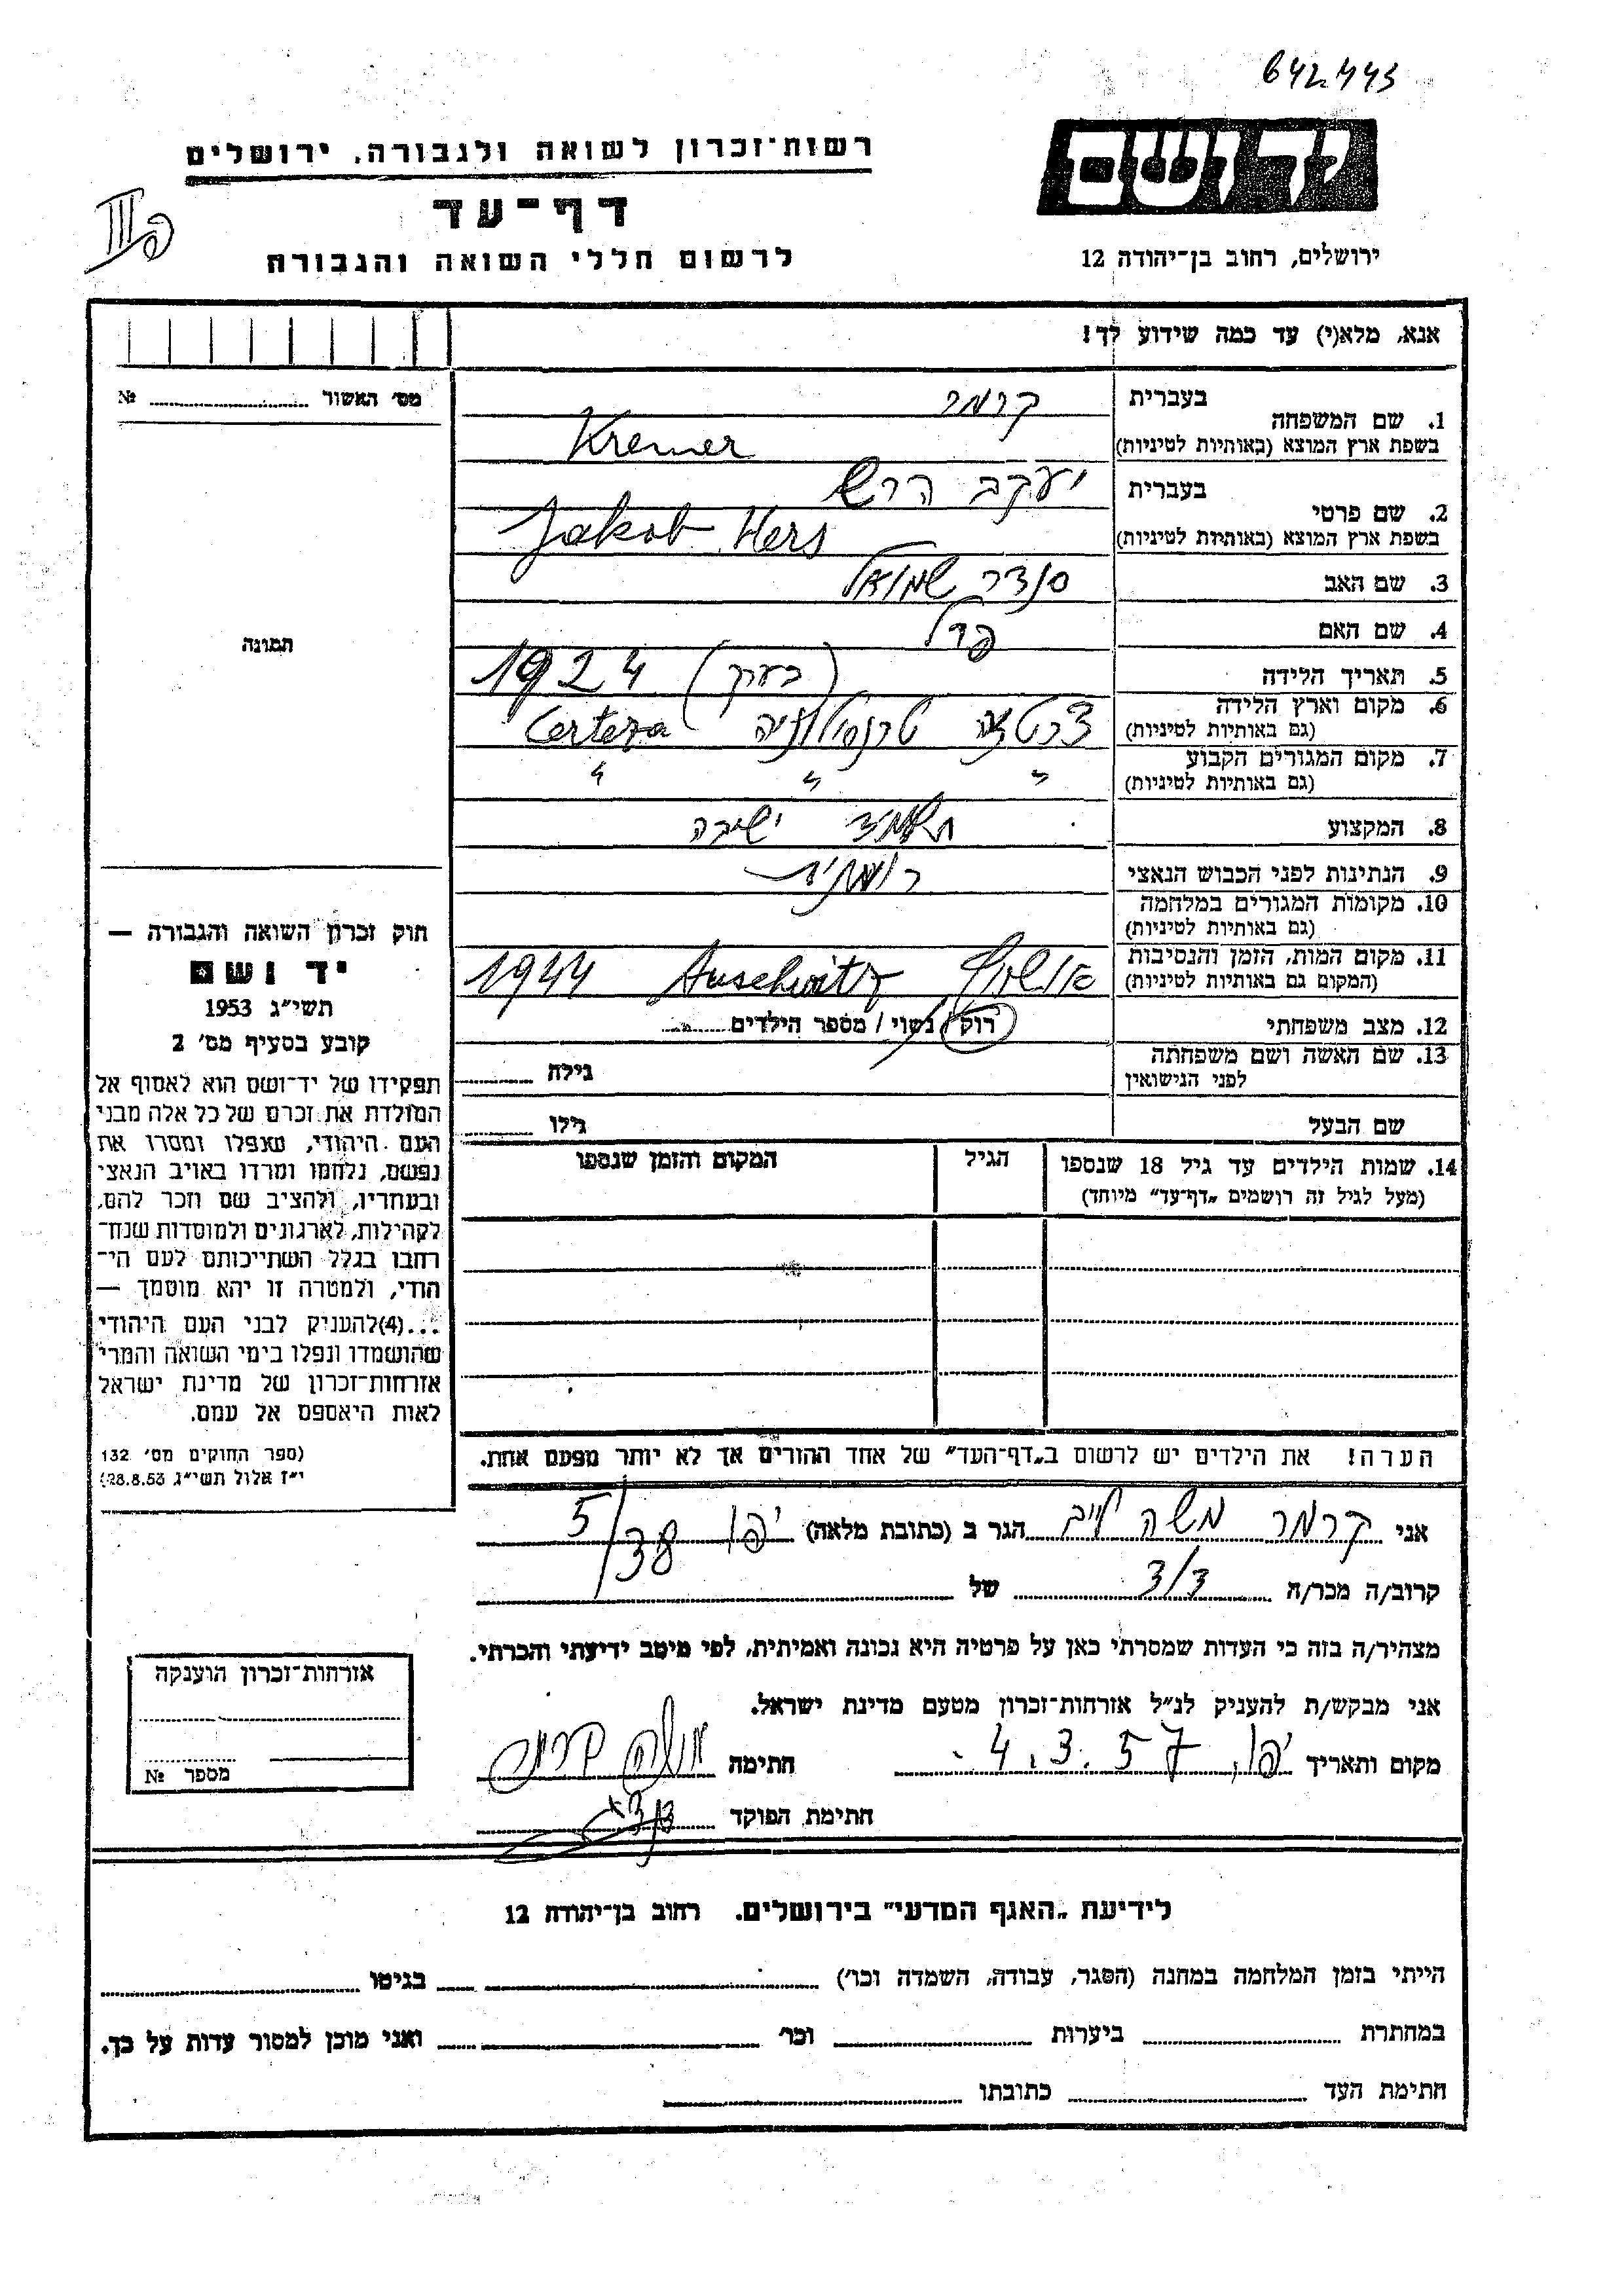 642443
יד ושם
רשות־זכרון לשואה ולגבורה, ירושלים
דף־עד
לרשום חללי השואה והגבורה
ירושלים, רחוב בן־יהודה 12
אנא, מלא(י) עד כמה שידוע לך!
מס׳ האשור № ........
1. שם המשפחה
בעברית קרמר
בשפת ארץ המוצא (באותיות לטיניות) Kremer
2. שם פרטי
בעברית יעקב הרש
בשפת ארץ המוצא (באותיות לטיניות) Jakob Hers
3. שם האב סנדר שמואל
4. שם האם פרל
5. תאריך הלידה 1924 (בערך)
6. מקום וארץ הלידה
(גם באותיות לטיניות) צרטזה טרנסילווניה Certeza
7. מקום המגורים הקבוע
(גם באותיות לטיניות) " " "
8. המקצוע תלמיד ישיבה
9. הנתינות לפני הכבוש הנאצי רומנית
10. מקומות המגורים במלחמה
(גם באותיות לטיניות)
11. מקום המות, הזמן והנסיבות
(המקום גם באותיות לטיניות) אושוויץ Auschwitz 1944
12. מצב משפחתי רווק / נשוי / מספר הילדים........
13. שם האשה ושם משפחתה
לפני הנישואין גילה ........
שם הבעל גילו ........
14. שמות הילדים עד גיל 18 שנספו
(מעל לגיל זה רושמים „דף־עד״ מיוחד)
הגיל
המקום והזמן שנספו
הערה! את הילדים יש לרשום ב„דף־העד״ של אחד ההורים אך לא יותר מפעם אחת.
תמונה
חוק זכרון השואה והגבורה —
יד ושם
תשי״ג 1953
קובע בסעיף מס׳ 2
תפקידו של יד־ושם הוא לאסוף אל
המולדת את זכרם של כל אלה מבני
העם היהודי, שנפלו ומסרו את
נפשם, נלחמו ומרדו באויב הנאצי
ובעוזריו, ולהציב שם וזכר להם,
לקהילות, לארגונים ולמוסדות שנח־
רבו בגלל השתייכותם לעם הי־
הודי, ולמטרה זו יהא מוסמך —
...(4)להעניק לבני העם היהודי
שהושמדו ונפלו בימי השואה והמרי
אזרחות־זכרון של מדינת ישראל
לאות היאספם אל עמם.
(ספר החוקים מס׳ 132
י״ז אלול תשי״ג 28.8.53)
אני קרמר משה לייב הגר ב (כתובת מלאה) יפו 38/5
קרוב/ה מכר/ה ........ של ........
מצהיר/ה בזה כי העדות שמסרתי כאן על פרטיה היא נכונה ואמיתית, לפי מיטב ידיעתי והכרתי.
אני מבקש/ת להעניק לנ״ל אזרחות־זכרון מטעם מדינת ישראל.
מקום ותאריך יפו, 4.3.57 חתימה
חתימת הפוקד
אזרחות־זכרון הוענקה
מספר №
לידיעת „האגף המדעי״ בירושלים. רחוב בן־יהודה 12
הייתי בזמן המלחמה במחנה (הסגר, עבודה, השמדה וכו׳) ........ בגיטו ........
במחתרת ........ ביערות ........ וכו׳ ........ ואני מוכן למסור עדות על כך.
חתימת העד ........ כתובתו ........